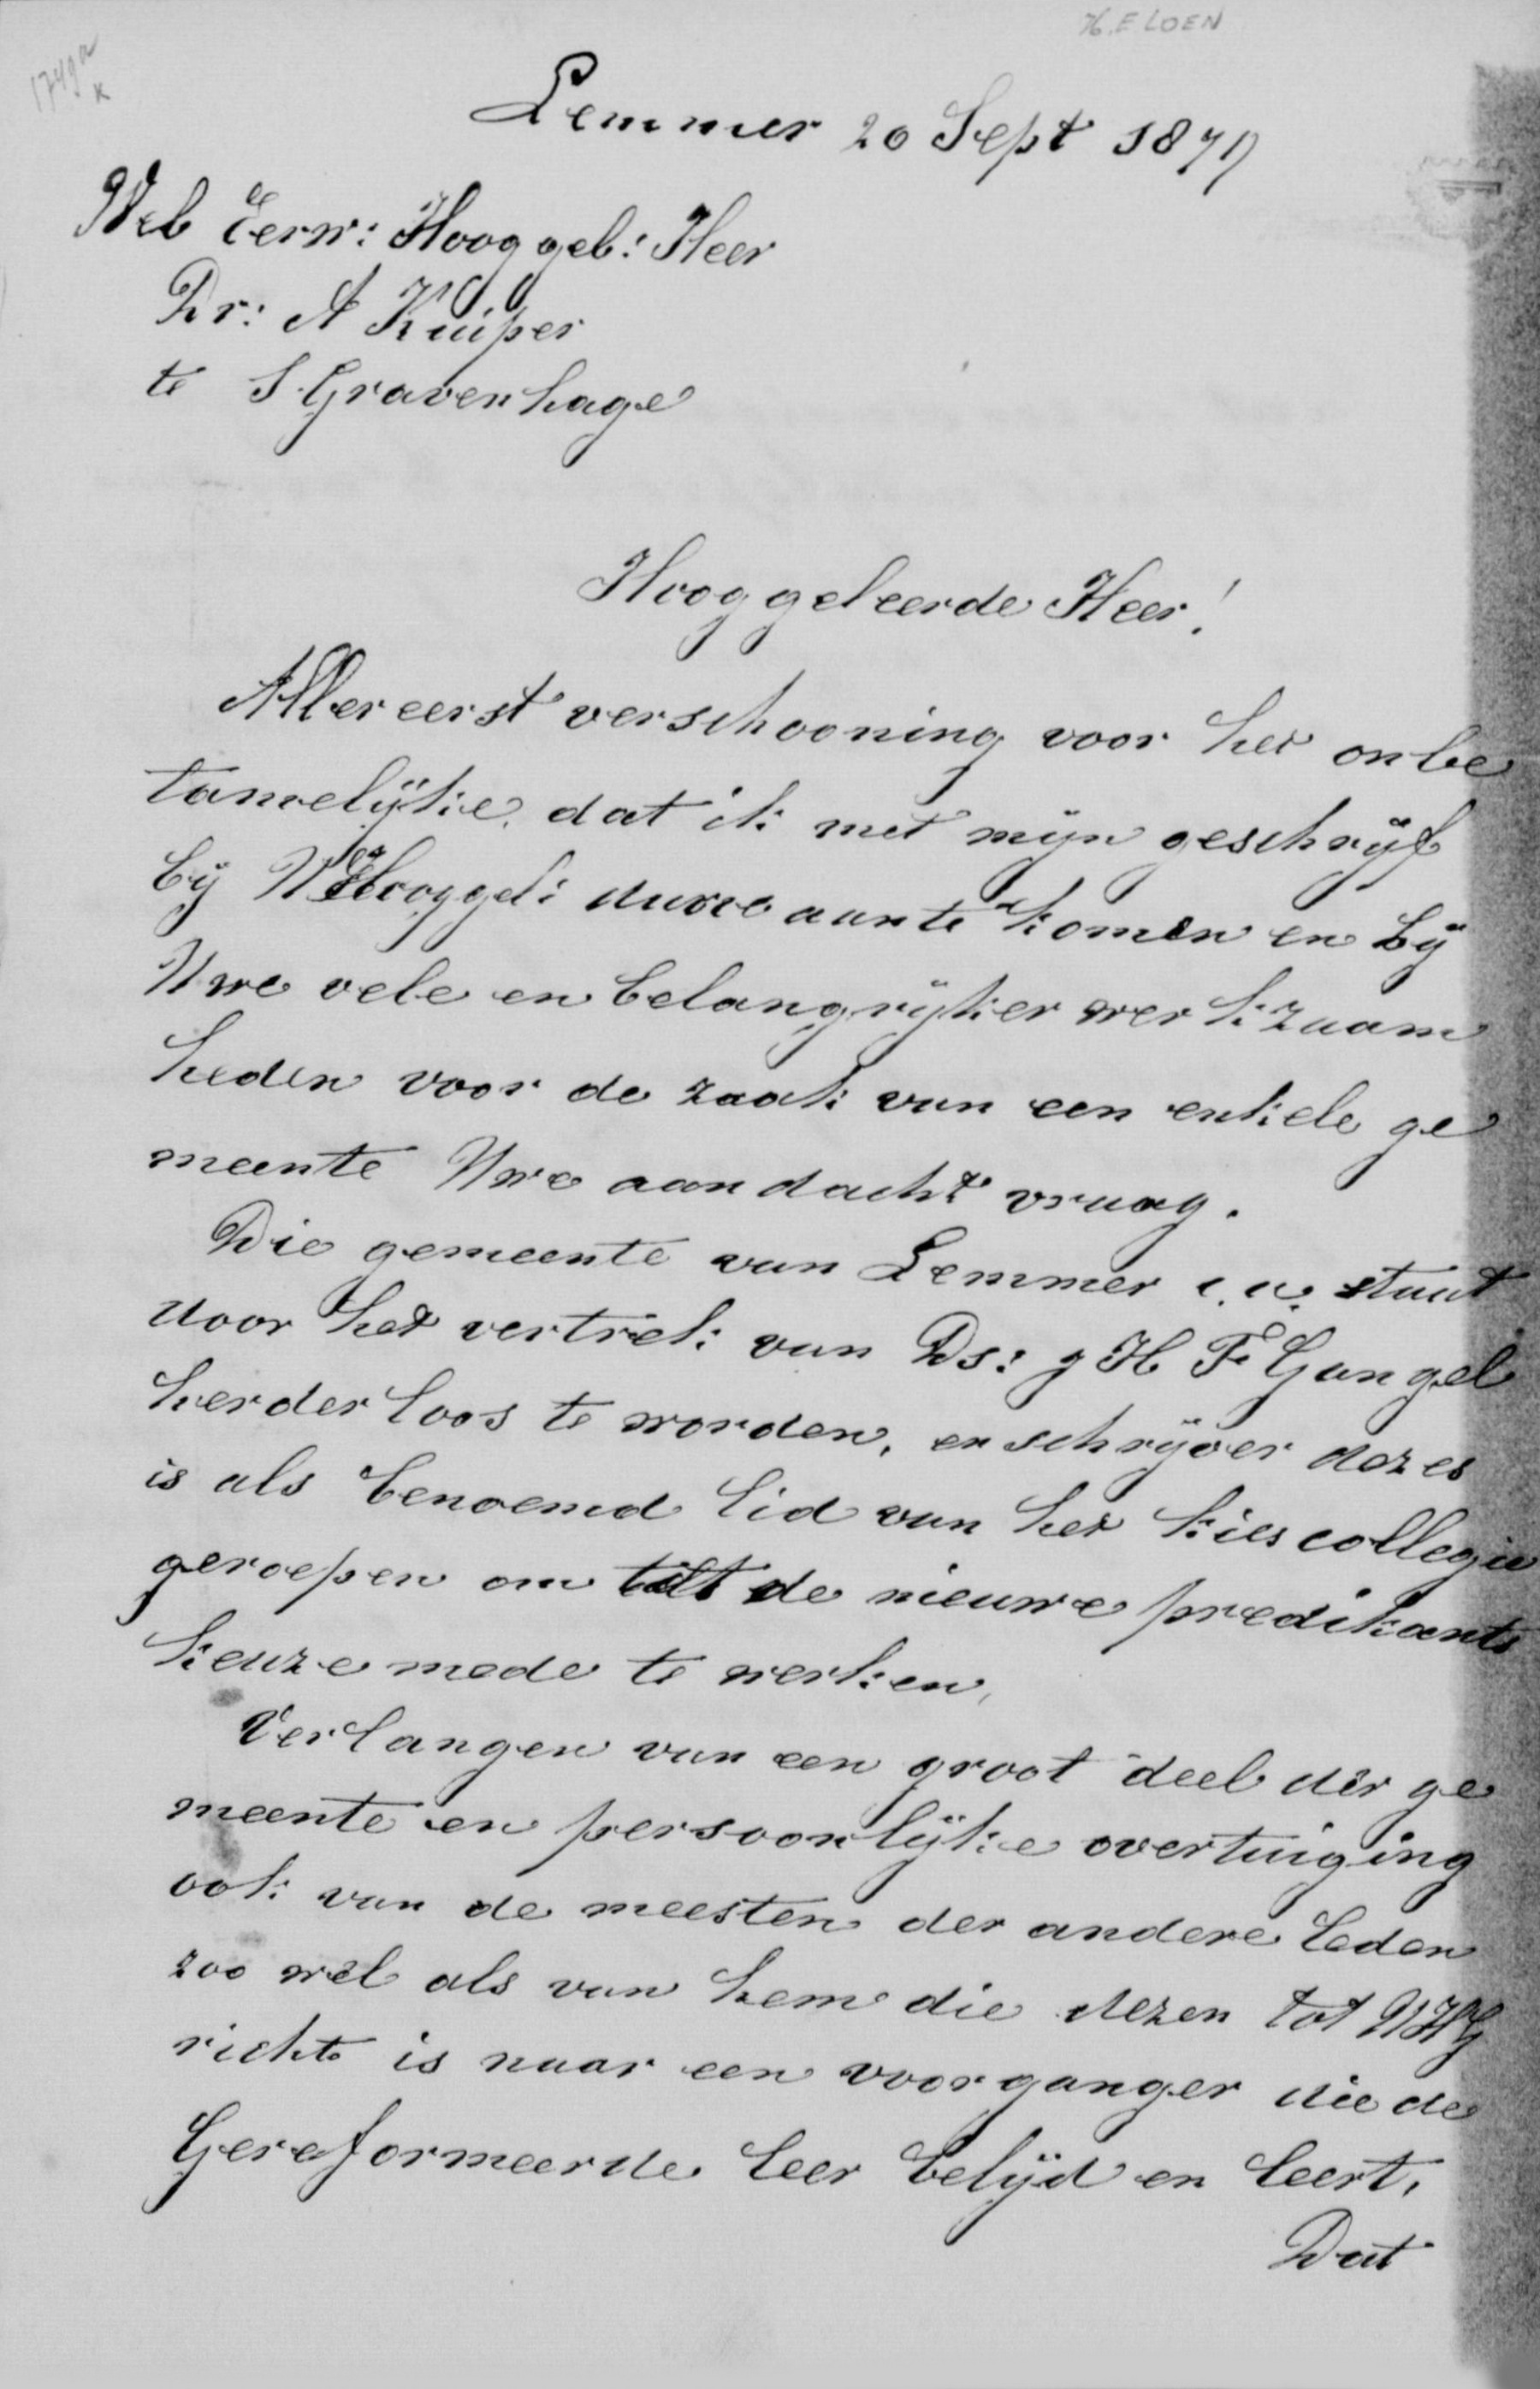 H. ELOEN
1749a
K
Lemmer 20 Sept 1879
Wel Eerw: Hooggeb: Heer
Dr: A Kuiper
te S Gravenhage
Hooggeleerde Heer!
Allereerst verschooning voor het onbe
tamelijke, dat ik met mijn geschrijf
bij UHooggel: durve aan te komen en bij
Uwe vele en belangrijker werkzaam
heden voor de zaak van een enkele ge
meente Uwe aandacht vraag.
Die gemeente van Lemmer c.a. staat
door het vertrek van Ds: J H F Gangel
herderloos te worden, en schrijver dezes
is als benoemd lid van het kiescollegie
geroepen om tot de nieuwe predikants
keuze mede te werken,
Verlangen van een groot deel der ge
meente en persoonlijke overtuiging
ook van de meesten der andere leden
zoo wel als van hem die dezen tot UHG
richt is naar een voorganger die de
Gereformeerde leer belijd en leert,
Dat